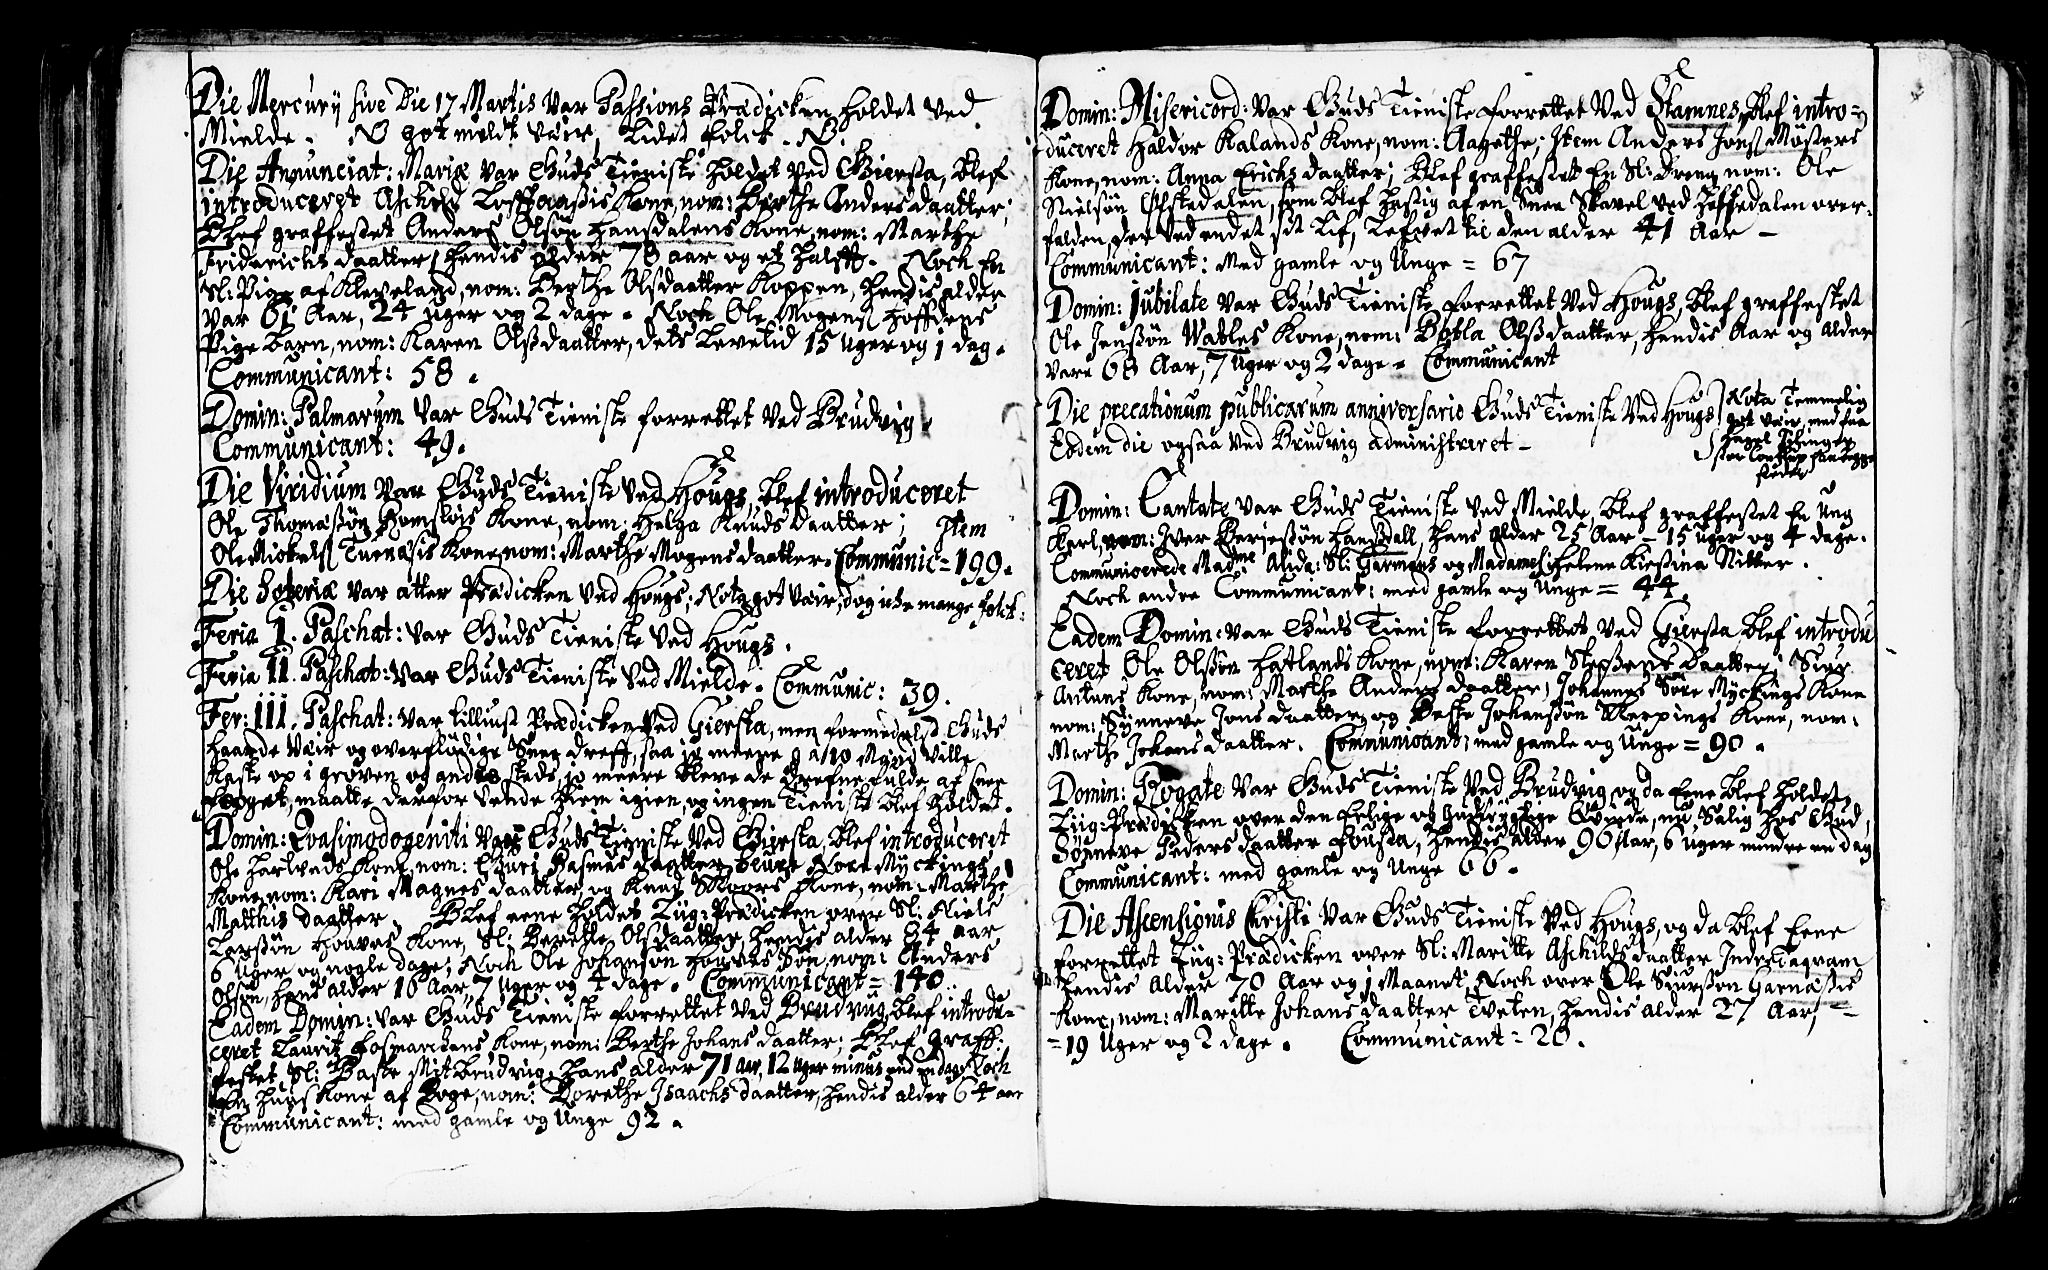 Die Mercurij sive Die 17 Martis var Passions Prædicken holdet ved
Mielde. NB got mildt vair, lidet folck. NB.
Die Annunciat: Mariæ var Guds Tieniste holdet ved Giersta, blef
introduceret Aschild Kone, nom: Berthe Anders daatter;
Blef graffestet Anders Olsøn Hansdalens Kone, nom: Marthe
Friderichs daatter, hendis alder 78 aar og et halft. Noch En
Sl: Pige af Kleveland, nom: Berthe Olsdaatter Koppen, hendis alder
var 61 Aar, 24 uger og 2 dage. Noch Ole Mogens
Pige barn, nom: Karen Olsdaatter, dets Levetid 15 uger og 1 dag.
Communicant: 58.
Domin: Palmarum var Guds Tieniste forrettet ved Brudvig.
Communicant: 49.
Die Viridium var Guds Tieniste ved Hougs, blef introduceret
Ole Thomasøn Kone, nom: Helga Knuds daatter; Item
Ole Mickels Kone, nom: Marthe Mogens daatter. Communic = 199.
Die Soteriæ var atter Prædicken ved Hougs; Nota got vair, dog icke mange folck:
Feria I. Paschat: var Guds Tieniste ved Hougs.
Feria II. Paschat: var Guds Tieniste ved Mielde. Communic: 39.
Fer: III. Paschat: var tillliust Prædicken ved Giersta, men formedelst Guds
haarde vair og overflødige Snee dreff, saa jo meere 9 a 10 Mand ville
kaste op i grøven og andre steds, jo meere bleve de Grefne fulde af snee
, maatte derfor vende hiem igien, og ingen Tieniste blef holdet.
Domin: Qvasimodogeniti var Guds Tieniste ved Giersta, blef introduceret
Ole Kone, nom: Guri Rasmus daatter, Nore Myckings
Kone, nom: Kari Magnes daatter, og Knud Skoors Kone, nom: Marthe
Matthis daatter. Blef eene holdet Liig-Prædicken over Sl: Niels
Larssøn Kone, Sl: Berethe Olsdaatter, hendis alder 84 aar
6 Uger og nogle dage; Noch Ole Johansøn Søn, nom: Anders
Olsøn, hans alder 16 Aar, 7 uger og 4 dage. Communicant = 140.
Eadem Domin: var Guds Tieniste forrettet ved Brudvig, blef introdu=
ceret Laurits Kone, nom: Berthe Johans daatter; Blef graff:
festet Sl: Mit Brudvig, hans alder 71 aar, 12 Uger minus end en dag; Noch
En Huus Kone af Boge, nom: Dorethe Isaachs daatter, hendis alder 64 aar
Communicant: med gamle og Unge 92.
Domin: Misericord: var Guds Tieniste forrettet ved Stamnes, blef intro=
duceret Haldor Kalands Kone, nom: Aagethe; Item Anders Jons Møsters
Kone, nom: Anna Erichs daatter; Blef graffestet En Sl: Dreng nom: Ole
Nielsøn, som blef hastig af en Snee Skavel ved over-
falden, der ved endet sit Lif, Lefvet til den alder 41 Aar –
Communicant: Med gamle og Unge = 67
Domin: Jubilate var Guds Tieniste forrettet ved Hougs, blef graffestet
Ole Jenssøn Watles Kone, nom: Botla Olsdaatter, hendis Aar og alder
vare 68 Aar, 7 Uger og 2 dage. Communicant
Die precationum publicarum anniversario Guds Tieniste ved Hougs
Eodem die ogsaa ved Brudvig administreret –
Nota Temmelig
got vair, med faa
stor begge
steder
Domin: Cantate var Guds Tieniste ved Mielde, blef graffestet En Ung
Karl, nom: Iver Hansdall, hans alder 25 Aar – 15 uger og 4 dage.
Communicerede Madme Alida: Sl: Garmans og Madamesl: Helena Kirstina Ritter.
Noch andre Communicant: med gamle og Unge = 44.
Eadem Domin: var Guds Tieniste forrettet ved Giersta blef introdu
ceret Ole Olssøn Hatlands Kone, nom: Karen Steffens daatter; Siur
Kone, nom: Marthe Anders daatter; Johannes Søre Myckings Kone
nom: Synneve Jons daatter, og Johanssøn Kone, nom:
Marthe Johans daatter. Communicant: med gamle og Unge = 90.
Domin: Rogate var Guds Tieniste ved Brudvig og da Eene blef holdet
Liig-Prædicken over den Erlige og Gudfrygtige Qvinde, nu Salig hos Gud,
Synneve Peders daatter Fousta, hendis alder 90 Aar, 6 uger mindre en dag
Communicant: med gamle og Unge 66.
Die Ascensionis Christi var Guds Tieniste ved Hougs, og da blef Eene
forrettet Liig-Prædicken over Sl: Maritte Aschilds daatter
hendis alder 70 Aar og 1 Maanet; Noch over Ole Siurssøn Garnæssis
Kone, nom: Maritte Johans daatter Tveten, hendis alder 27 Aar, =
= 19 Uger og 2 dage. Communicant = 20.